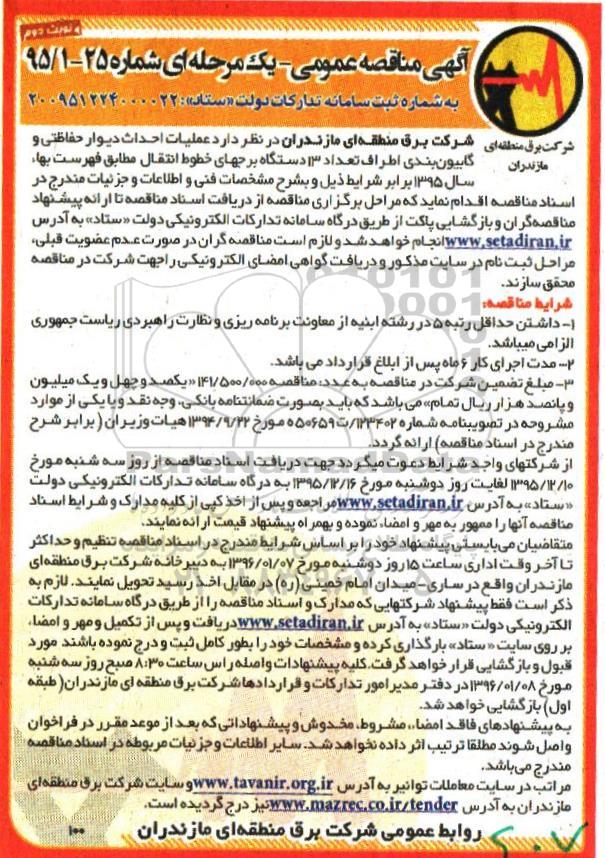 نوبت دوم
آگهی مناقصه عمومی - یک مرحله ای شماره ۲۵-۹۵/۱
به شماره ثبت سامانه تدارکات دولت «ستاد»: ۲۰۰۹۵۱۲۲۴۰۰۰۰۲۲
شرکت برق منطقه‌ای
مازندران
شرکت برق منطقه‌ای مازندران در نظر دارد عملیات احداث دیوار حفاظتی و
گابیون‌بندی اطراف تعداد ۱۳ دستگاه برجهای خطوط انتقال مطابق فهرست بها،
سال ۱۳۹۵ برابر شرایط ذیل و بشرح مشخصات فنی و اطلاعات و جزئیات مندرج در
اسناد مناقصه اقدام نماید که مراحل برگزاری مناقصه از دریافت اسناد مناقصه تا ارائه پیشنهاد
مناقصه‌گران و بازگشایی پاکت از طریق درگاه سامانه تدارکات الکترونیکی دولت «ستاد» به آدرس
www.setadiran.ir انجام خواهد شد و لازم است مناقصه گران در صورت عدم عضویت قبلی،
مراحل ثبت نام در سایت مذکور و دریافت گواهی امضای الکترونیکی را جهت شرکت در مناقصه
محقق سازند.
شرایط مناقصه:
۱- داشتن حداقل رتبه ۵ در رشته ابنیه از معاونت برنامه ریزی و نظارت راهبردی ریاست جمهوری
الزامی میباشد.
۲- مدت اجرای کار ۶ ماه پس از ابلاغ قرارداد می باشد.
۳- مبلغ تضمین شرکت در مناقصه به عدد: مناقصه ۱۴۱/۵۰۰/۰۰۰ «یکصد و چهل و یک میلیون
و پانصد هزار ریال تمام» می باشد که باید بصورت ضمانتنامه بانکی، وجه نقد و یا یکی از موارد
مشروحه در تصویبنامه شماره ۱۲۳۴۰۲/ت۵۰۶۵۹ه مورخ ۱۳۹۴/۹/۲۲ هیات وزیران (برابر شرح
مندرج در اسناد مناقصه) ارائه گردد.
از شرکتهای واجد شرایط دعوت میگردد جهت دریافت اسناد مناقصه از روز سه شنبه مورخ
۱۳۹۵/۱۲/۱۰ لغایت روز دوشنبه مورخ ۱۳۹۵/۱۲/۱۶ به درگاه سامانه تدارکات الکترونیکی دولت
«ستاد» به آدرس www.setadiran.ir مراجعه و پس از اخذ کپی از کلیه مدارک و شرایط اسناد
مناقصه آنها را ممهور به مهر و امضاء نموده و بهمراه پیشنهاد قیمت ارائه نمایند.
متقاضیان می‌بایستی پیشنهاد خود را بر اساس شرایط مندرج در اسناد مناقصه تنظیم و حداکثر
تا آخر وقت اداری ساعت ۱۵ روز دوشنبه مورخ ۱۳۹۶/۰۱/۰۷ به دبیرخانه شرکت برق منطقه‌ای
مازندران واقع در ساری- میدان امام خمینی (ره) در مقابل اخذ رسید تحویل نمایند. لازم به
ذکر است فقط پیشنهاد شرکتهایی که مدارک و اسناد مناقصه را از طریق درگاه سامانه تدارکات
الکترونیکی دولت «ستاد» به آدرس www.setadiran.ir دریافت و پس از تکمیل و مهر و امضاء،
بر روی سایت «ستاد» بارگذاری کرده و مشخصات خود را بطور کامل ثبت و درج نموده باشند مورد
قبول و بازگشایی قرار خواهد گرفت. کلیه پیشنهادات واصله راس ساعت ۸:۳۰ صبح روز سه شنبه
مورخ ۱۳۹۶/۰۱/۰۸ در دفتر مدیر امور تدارکات و قراردادها شرکت برق منطقه ای مازندران (طبقه
اول) بازگشایی خواهد شد.
به پیشنهادهای فاقد امضاء، مشروط، مخدوش و پیشنهاداتی که بعد از موعد مقرر در فراخوان
واصل شوند مطلقا ترتیب اثر داده نخواهد شد. سایر اطلاعات و جزئیات مربوطه در اسناد مناقصه
مندرج می‌باشد.
مراتب در سایت معاملات توانیر به آدرس www.tavanir.org.ir و سایت شرکت برق منطقه‌ای
مازندران به آدرس www.mazrec.co.ir/tender نیز درج گردیده است.
روابط عمومی شرکت برق منطقه‌ای مازندران
۱۰۰